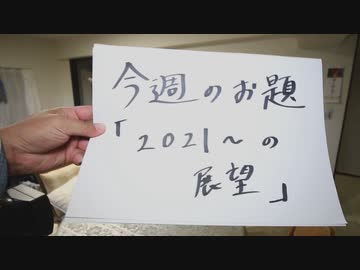 今週のお題
「2021～の
展望」